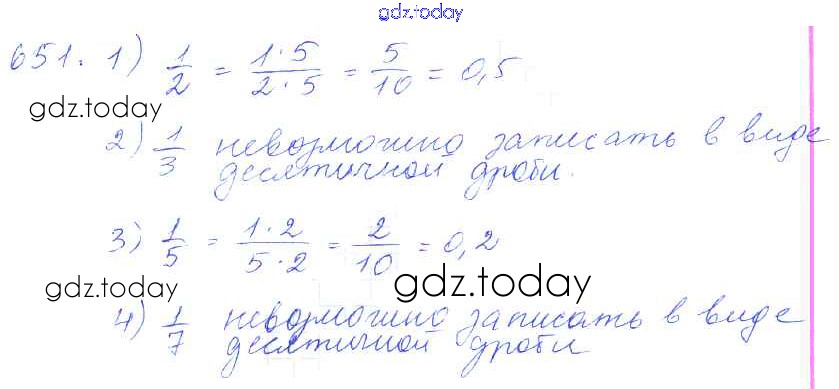 gdz.today
651. 1) 1/2 = 1·5/2·5 = 5/10 = 0,5
gdz.today
2) 1/3 невозможно записать в виде
десятичной дроби.
3) 1/5 = 1·2/5·2 = 2/10 = 0,2
gdz.today
gdz.today
4) 1/7 невозможно записать в виде
десятичной дроби